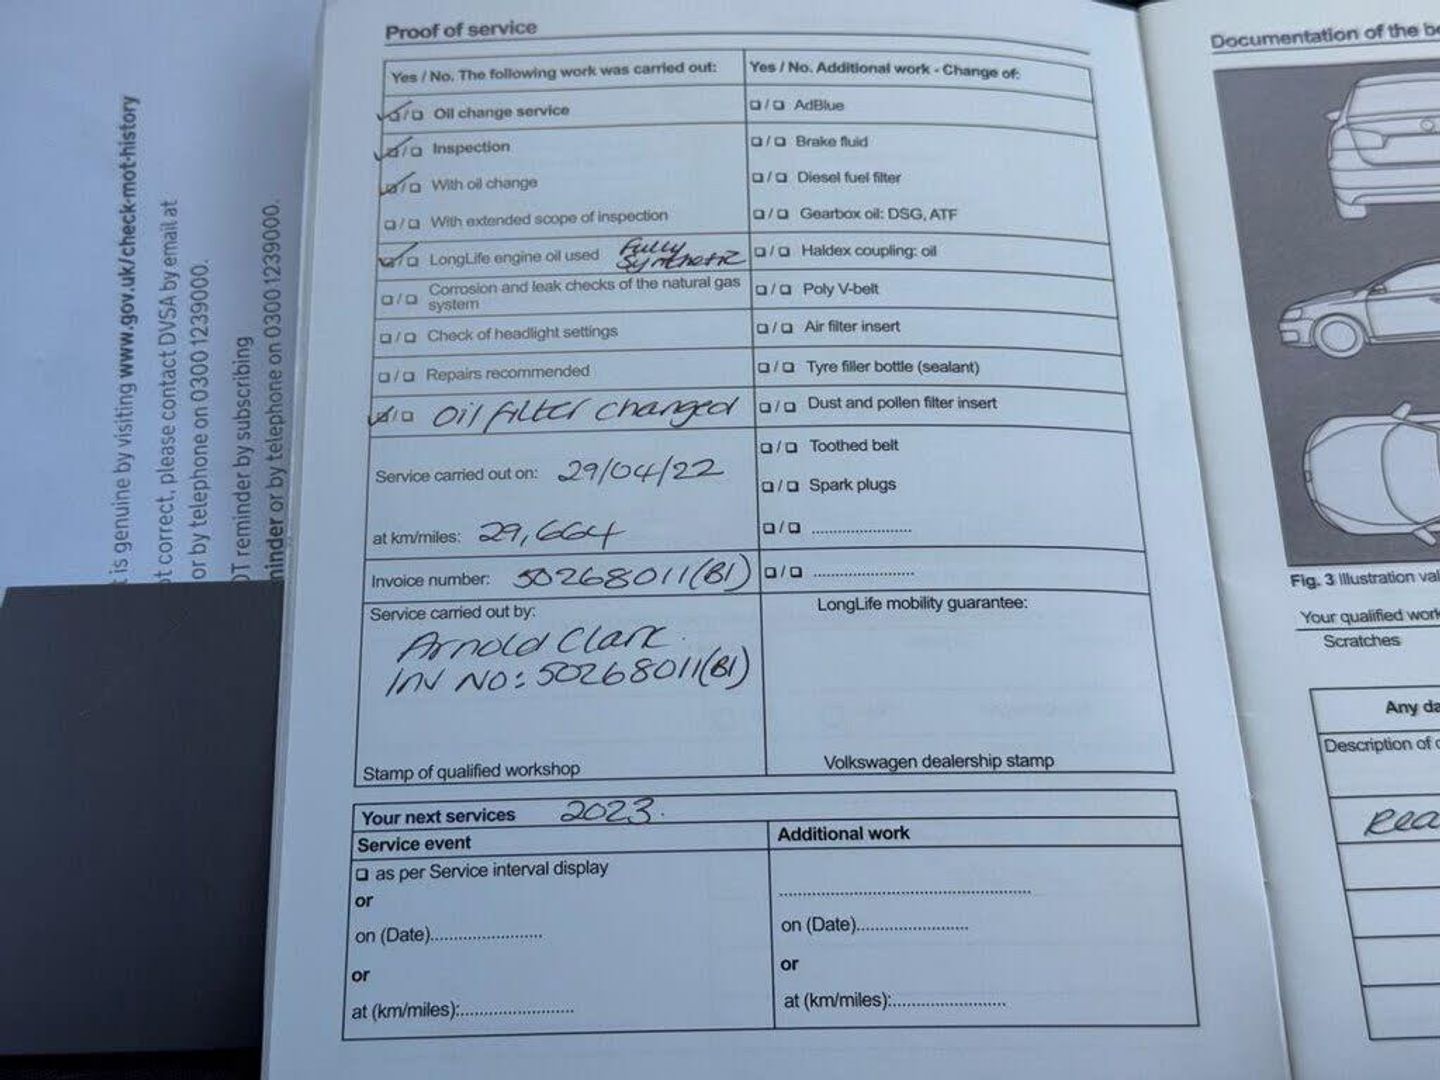 t is genuine by visiting www.gov.uk/check-mot-history
t correct, please contact DVSA by email at
or by telephone on 0300 1239000.
OT reminder by subscribing
minder or by telephone on 0300 1239000.
Proof of service
Yes / No. The following work was carried out:
Oil change service
Inspection
With oil change
With extended scope of inspection
LongLife engine oil used Fully Synthetic
Corrosion and leak checks of the natural gas
system
Check of headlight settings
Repairs recommended
Oil filter changed
Service carried out on: 29/04/22
at km/miles: 29,664
Invoice number: 50268011(B1)
Service carried out by:
Arnold Clark
INV NO: 50268011(B1)
Stamp of qualified workshop
Yes / No. Additional work - Change of:
AdBlue
Brake fluid
Diesel fuel filter
Gearbox oil: DSG, ATF
Haldex coupling: oil
Poly V-belt
Air filter insert
Tyre filler bottle (sealant)
Dust and pollen filter insert
Toothed belt
Spark plugs
LongLife mobility guarantee:
Volkswagen dealership stamp
Your next services 2023.
Service event
as per Service interval display
or
on (Date)........................
or
at (km/miles):........................
Additional work
on (Date)........................
or
at (km/miles):........................
Documentation of the b
Fig. 3 Illustration val
Your qualified work
Scratches
Any da
Description of
Rea